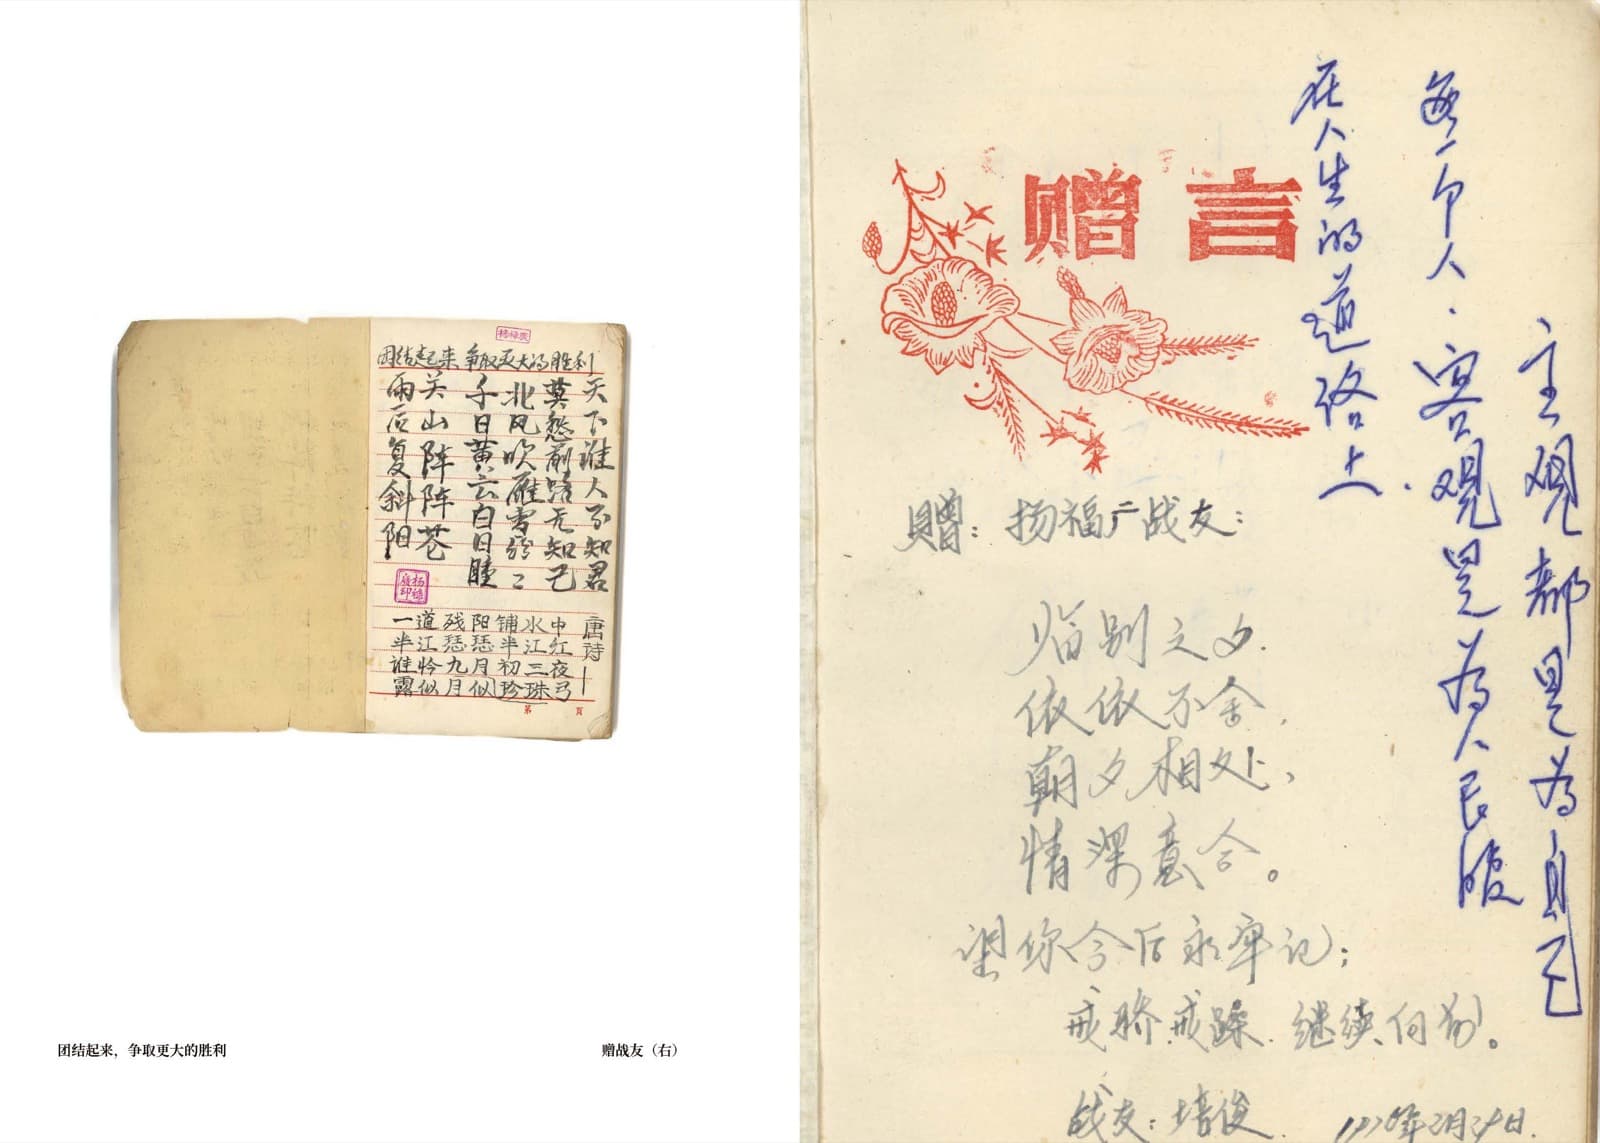 团结起来 争取更大的胜利
天下谁人不知君
莫愁前路无知己
北风吹雁雪纷〻
千日黄云白日
关山阵阵苍
雨后复斜阳
唐诗一
一道残阳铺水中
半江瑟瑟半江红
谁怜九月初三夜
露似月似珍珠弓
第 页
团结起来，争取更大的胜利
赠战友（右）
赠言
在人生的道路上.
每一个人.客观是为人民服
主观都是为自己
赠：扬福广战友：
临别之夕.
依依不舍.
朝夕相处、
情深意合。
望你今后永牢记；
戒骄戒躁.继续向前。
战友：培俊.